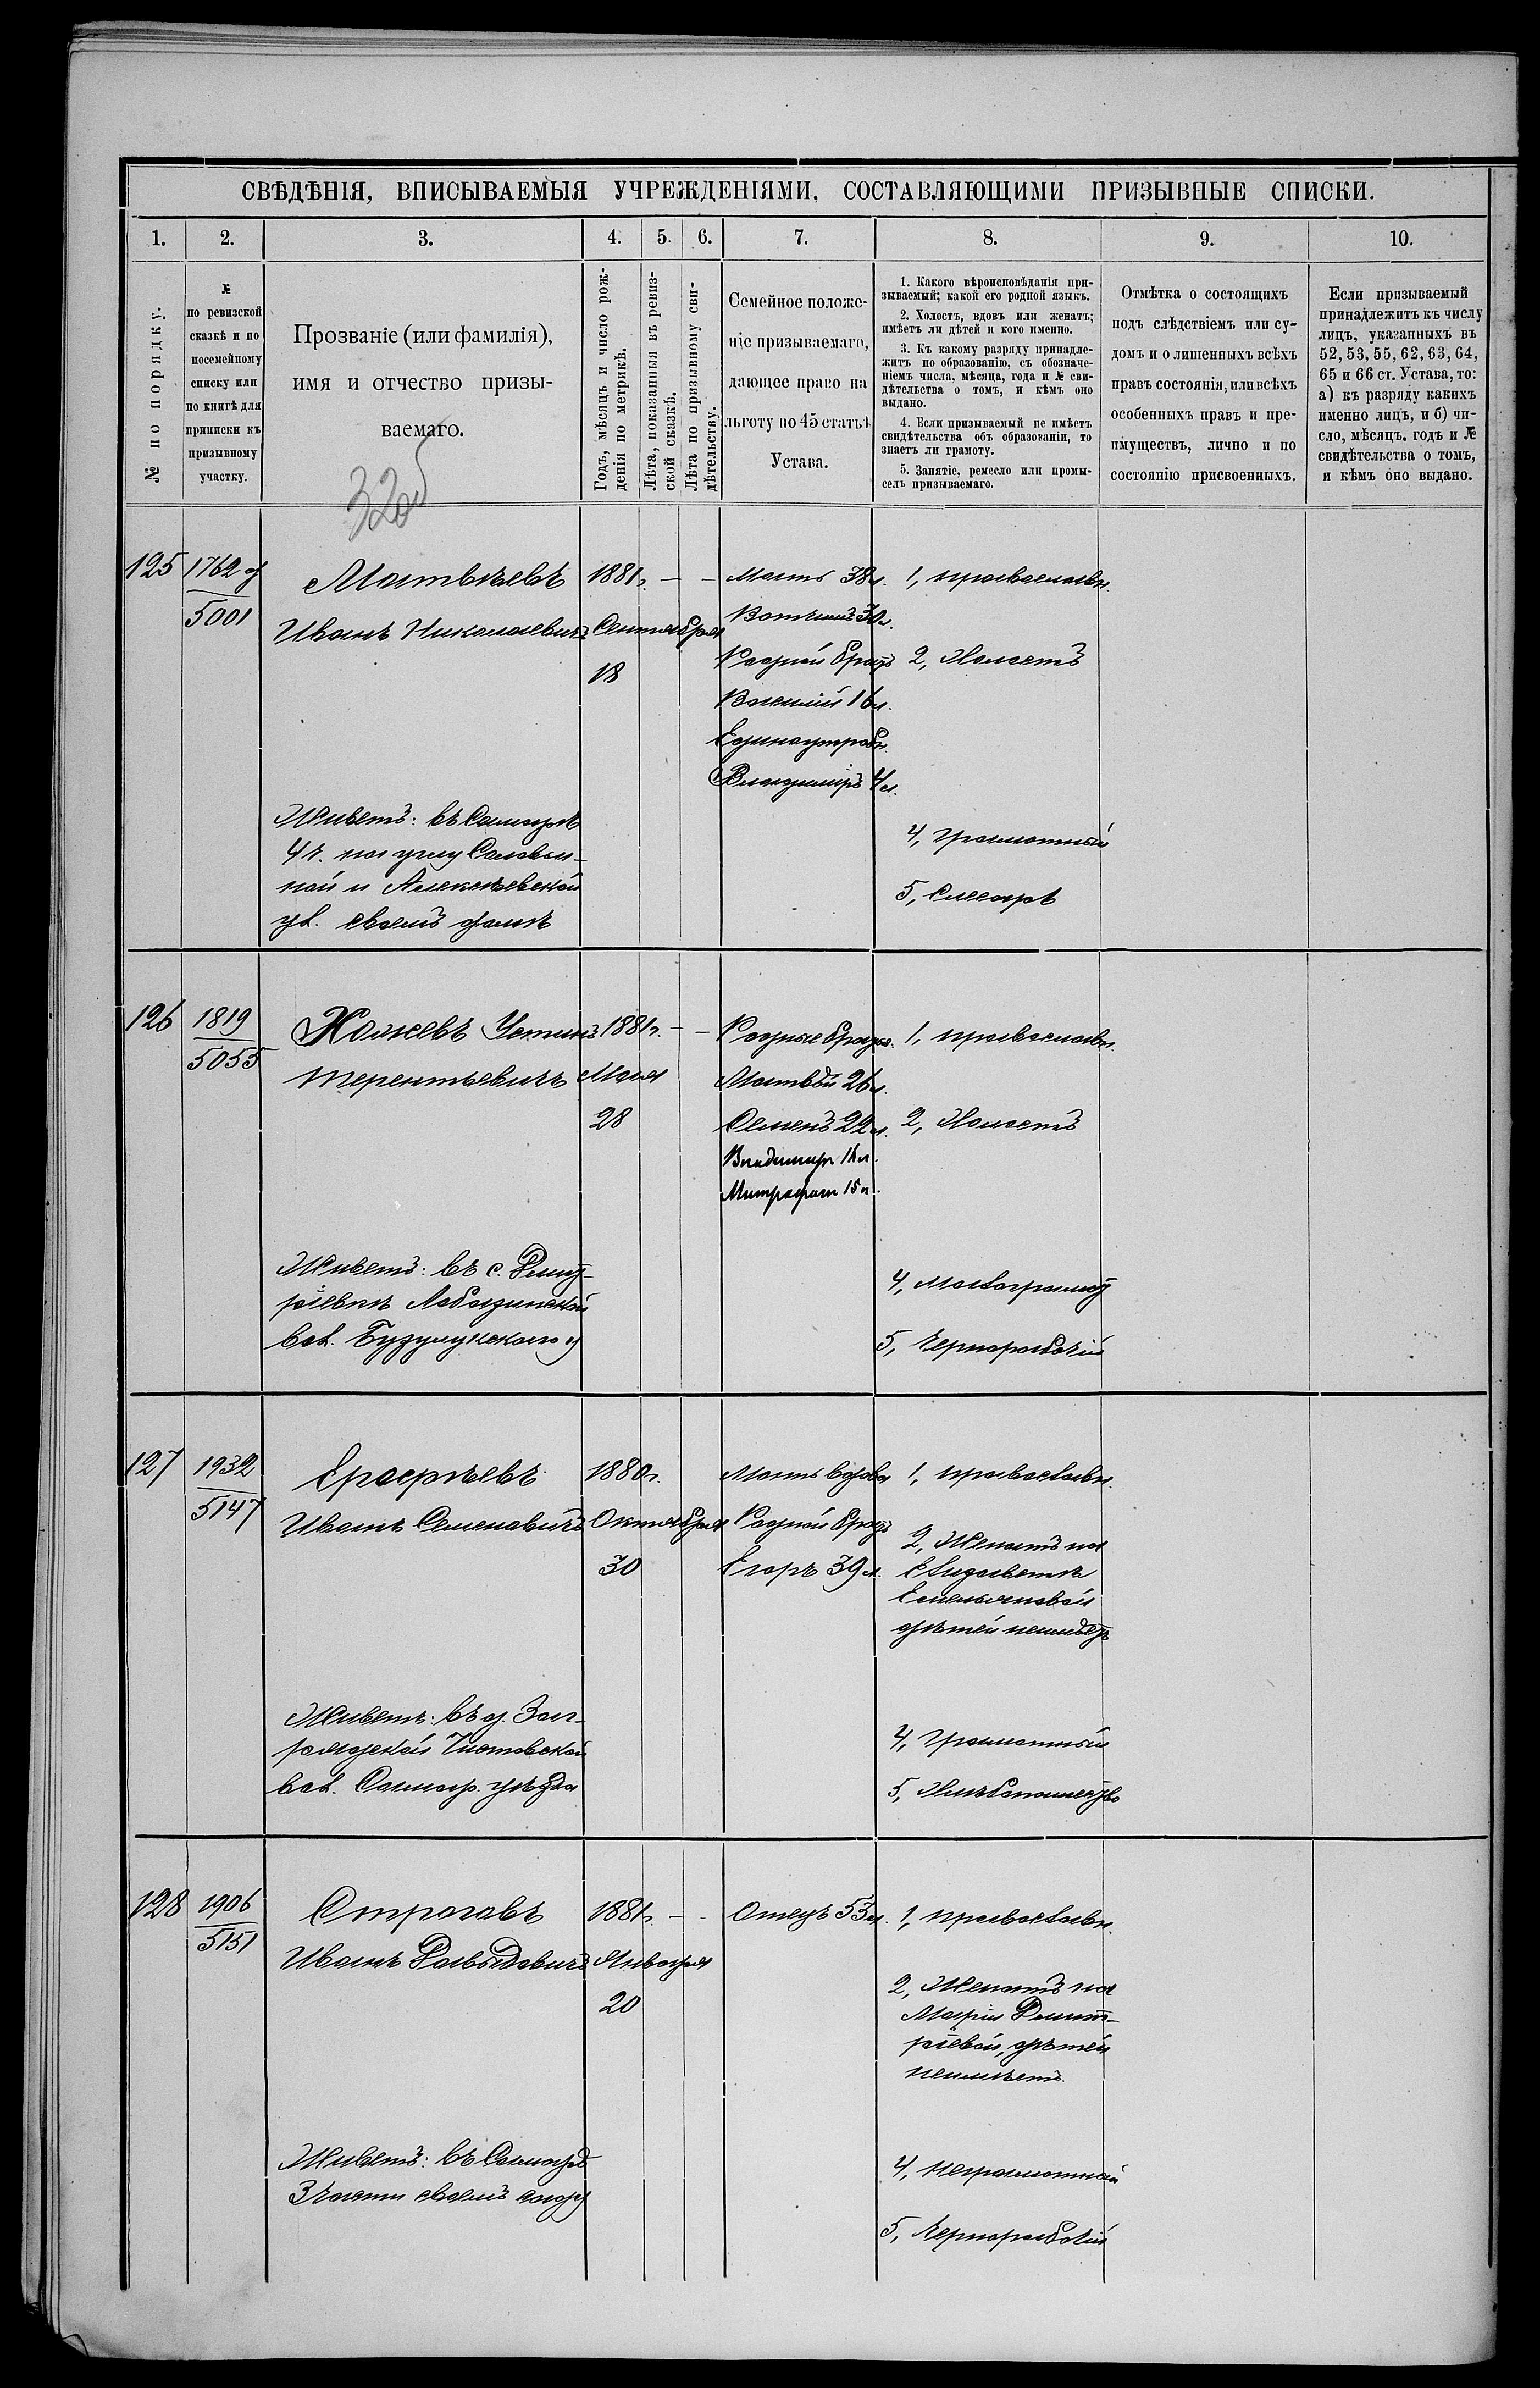 СВѢДѢНІЯ, ВПИСЫВАЕМЫЯ УЧРЕЖДЕНІЯМИ, СОСТАВЛЯЮЩИМИ ПРИЗЫВНЫЕ СПИСКИ.
1.
2.
3.
4.
5.
6.
7.
8.
9.
10.
№ по порядку.
№
по ревизской
сказкѣ и по
посемейному
списку или
по книгѣ для
приписки къ
призывному
участку.
Прозваніе (или фамилія),
имя и отчество призы-
ваемаго.
Годъ, мѣсяцъ и число рож-
денія по метрикѣ.
Лѣта, показанныя въ ревиз-
ской сказкѣ.
Лѣта по призывному сви-
дѣтельству.
Семейное положе-
ніе призываемаго,
дающее право на
льготу по 45 статьѣ
Устава.
1. Какого вѣроисповѣданія при-
зываемый; какой его родной языкъ.
2. Холостъ, вдовъ или женатъ;
имѣетъ ли дѣтей и кого именно.
3. Къ какому разряду принадле-
житъ по образованію, съ обозначе-
ніемъ числа, мѣсяца, года и № сви-
дѣтельства о томъ, и кѣмъ оно
выдано.
4. Если призываемый не имѣетъ
свидѣтельства объ образованіи, то
знаетъ ли грамоту.
5. Занятіе, ремесло или промы-
селъ призываемаго.
Отмѣтка о состоящихъ
подъ слѣдствіемъ или су-
домъ и о лишенныхъ всѣхъ
правъ состоянія, или всѣхъ
особенныхъ правъ и пре-
имуществъ, лично и по
состоянію присвоенныхъ.
Если призываемый
принадлежитъ къ числу
лицъ, указанныхъ въ
52, 53, 55, 62, 63, 64,
65 и 66 ст. Устава, то:
а) къ разряду какихъ
именно лицъ, и б) чи-
сло, мѣсяцъ, годъ и №
свидѣтельства о томъ,
и кѣмъ оно выдано.
125
1762
5001
Матвѣевъ
Иванъ Николаевичъ
1881 г.
Сентября
18
Мать 38 л.
Вотчимъ
Родной братъ
Василій 16 л.
Единоутробн.
Владиміръ 4 л.
1, православн.
2, Холостъ
4, грамотный
5, Слесарь
Живетъ: въ Самарѣ
4 ч. на углу Соловьи-
ной и Алексѣевской
ул. своемъ домѣ
126
1819
5055
Устинъ
Терентьевичъ
1881 г.
Мая
28
Родные братья
Матвѣй 26 л.
Семенъ 22 л.
Владимир 18 л.
Митрофан 15 л.
1, православн.
2, Холостъ
4, Малограмот.
5, Чернорабочій
Живетъ: въ с. Дмит-
ріевкѣ Лобазинской
вол. Бузулукскаго у
127
1932
5147
Ерофѣевъ
Иванъ Семеновичъ
1880 г.
Октября
30
Мать вдова
Родной братъ
Егоръ 39 л.
1, православн.
2, Женатъ на
Елизаветѣ
Емельяновой
дѣтей неимѣетъ
4, грамотный
5, Хлѣбопашество
Живетъ: въ д. Заг-
рядской
вол. Самар. уѣзда
128
1906
5151
Строговъ
Иванъ Давыдовичъ
1881 г.
Января
20
Отецъ 53 л.
1, православн.
2, Женатъ на
Маріи Дмит-
ріевой, дѣтей
неимѣетъ
4, неграмотный
5, Чернорабочій
Живетъ: въ Самарѣ
3 части своемъ саду